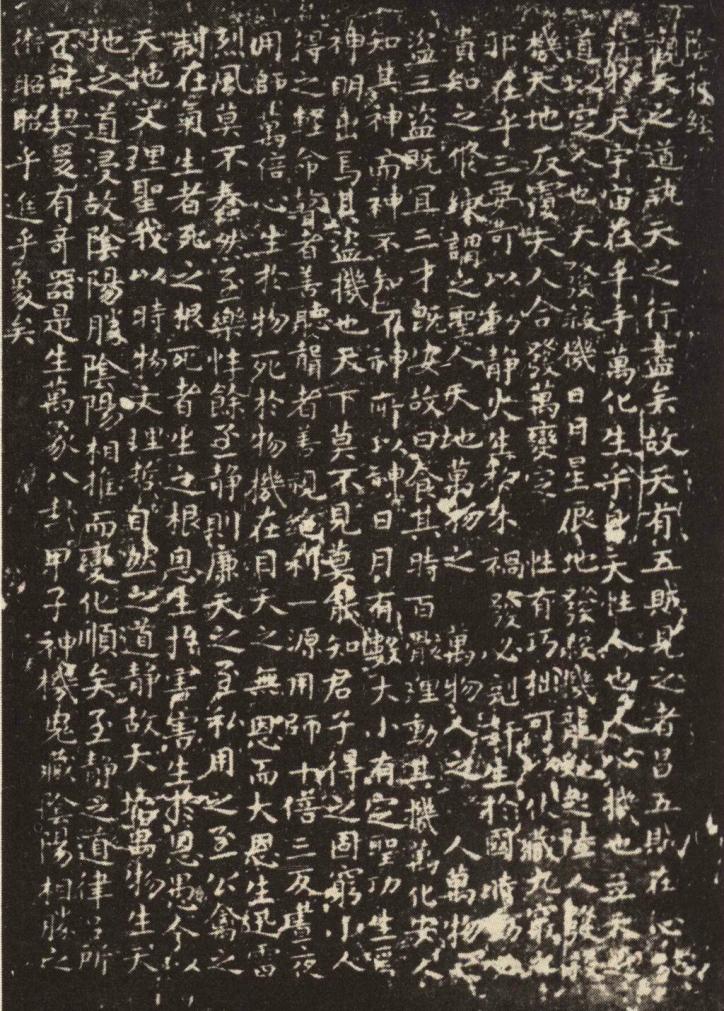 陰符經
觀天之道執天之行盡矣故天有五賊見之者昌五賊在心施
行於天宇宙在乎手萬化生乎身天性人也人心機也立天之
道以定人也天發殺機日月星辰地發殺機龍蛇起陸人發殺
機天地反覆天人合發萬變定 性有巧拙可以伏藏九竅之
邪在乎三要可以動靜火生於木禍發必剋姦生於國時動必
潰知之修煉謂之聖人天地萬物之 萬物人之 人萬物之
盜三盜既宜三才既安故曰食其時百骸理動其機萬化安人
知其神而神不知不神所以神日月有數大小有定聖功生焉
神明出焉其盜機也天下莫不見莫能知君子得之固窮小人
得之輕命瞽者善聽聾者善視絕利一源用師十倍三反晝夜
用師萬倍心生於物死於物機在目天之無恩而大恩生迅雷
烈風莫不蠢然至樂性餘至靜則廉天之至私用之至公禽之
制在氣生者死之根死者生之根恩生於害害生於恩愚人以
天地文理聖我以時物文理哲自然之道靜故天地萬物生天
地之道浸故陰陽勝陰陽相推而變化順矣至靜之道律呂所
不能契爰有奇器是生萬象八卦甲子神機鬼藏陰陽相勝之
術昭昭乎進乎象矣